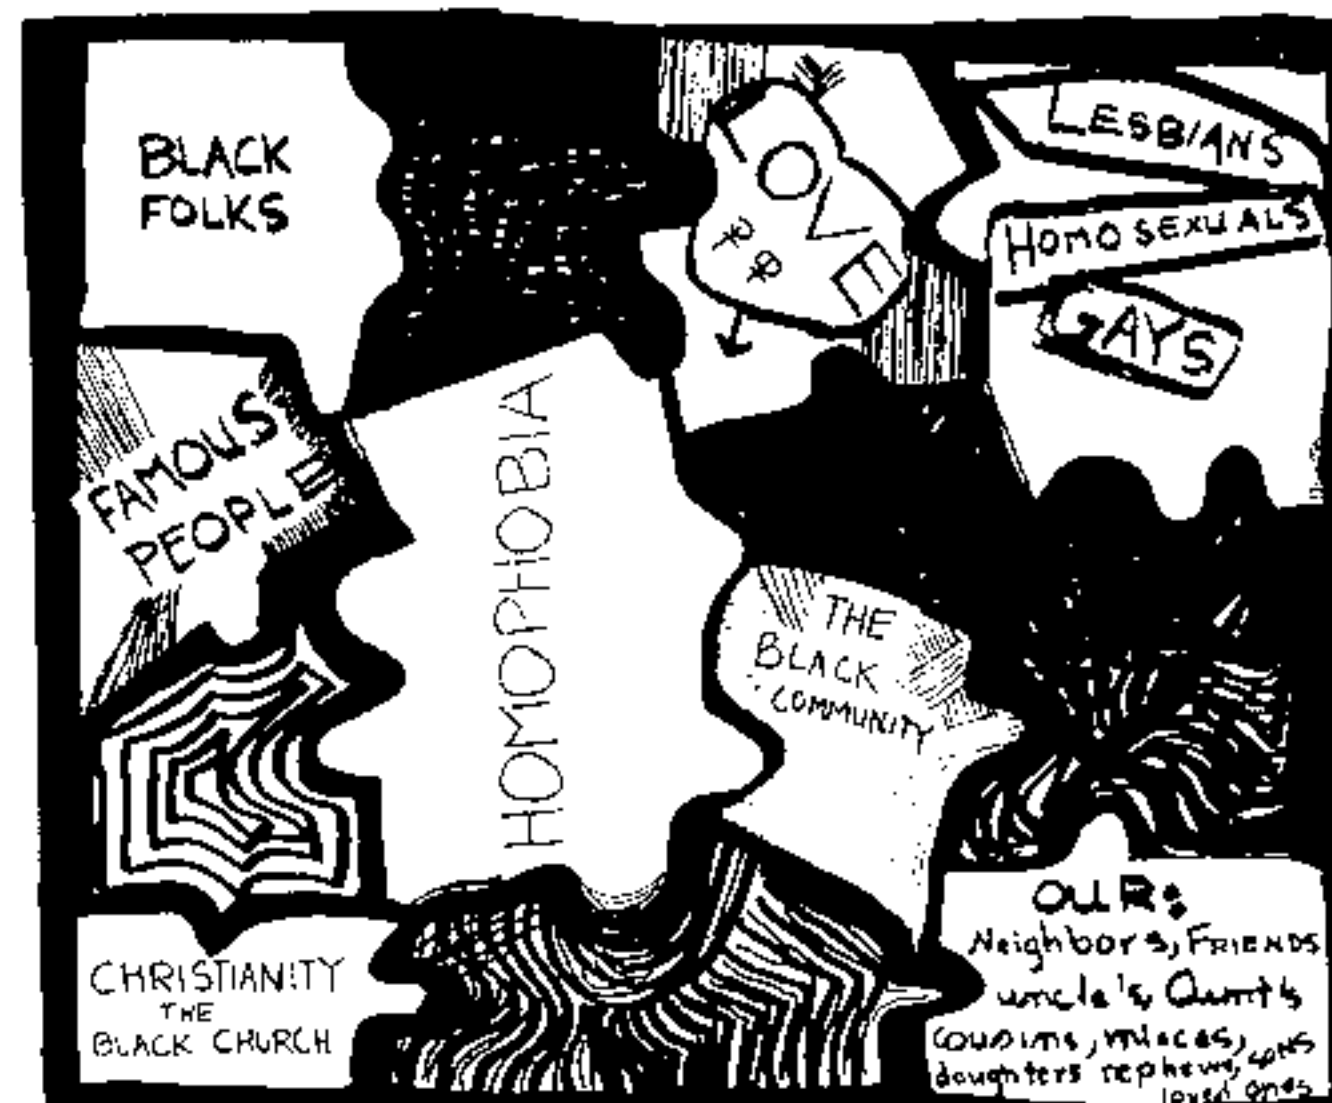 BLACK
FOLKS
LOVE
LESBIANS
HOMOSEXUALS
GAYS
FAMOUS
PEOPLE
HOMOPHOBIA
THE
BLACK
COMMUNITY
CHRISTIANITY
THE
BLACK CHURCH
OUR:
Neighbors, FRIENDS
uncle's, Aunt's
cousins, nieces,
daughters nephews, SONS
loved ones